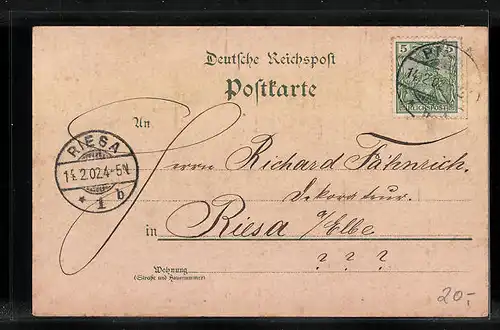 Deutsche Reichspost
Postkarte
5
REICHSPOST
An
RIESA
14.2.02.4-5N.
* 1 b
Herrn Richard Fähnrich.
Dekorateur.
in Riesa a/Elbe
? ? ?
Wohnung
(Straße und Hausnummer)
20,-